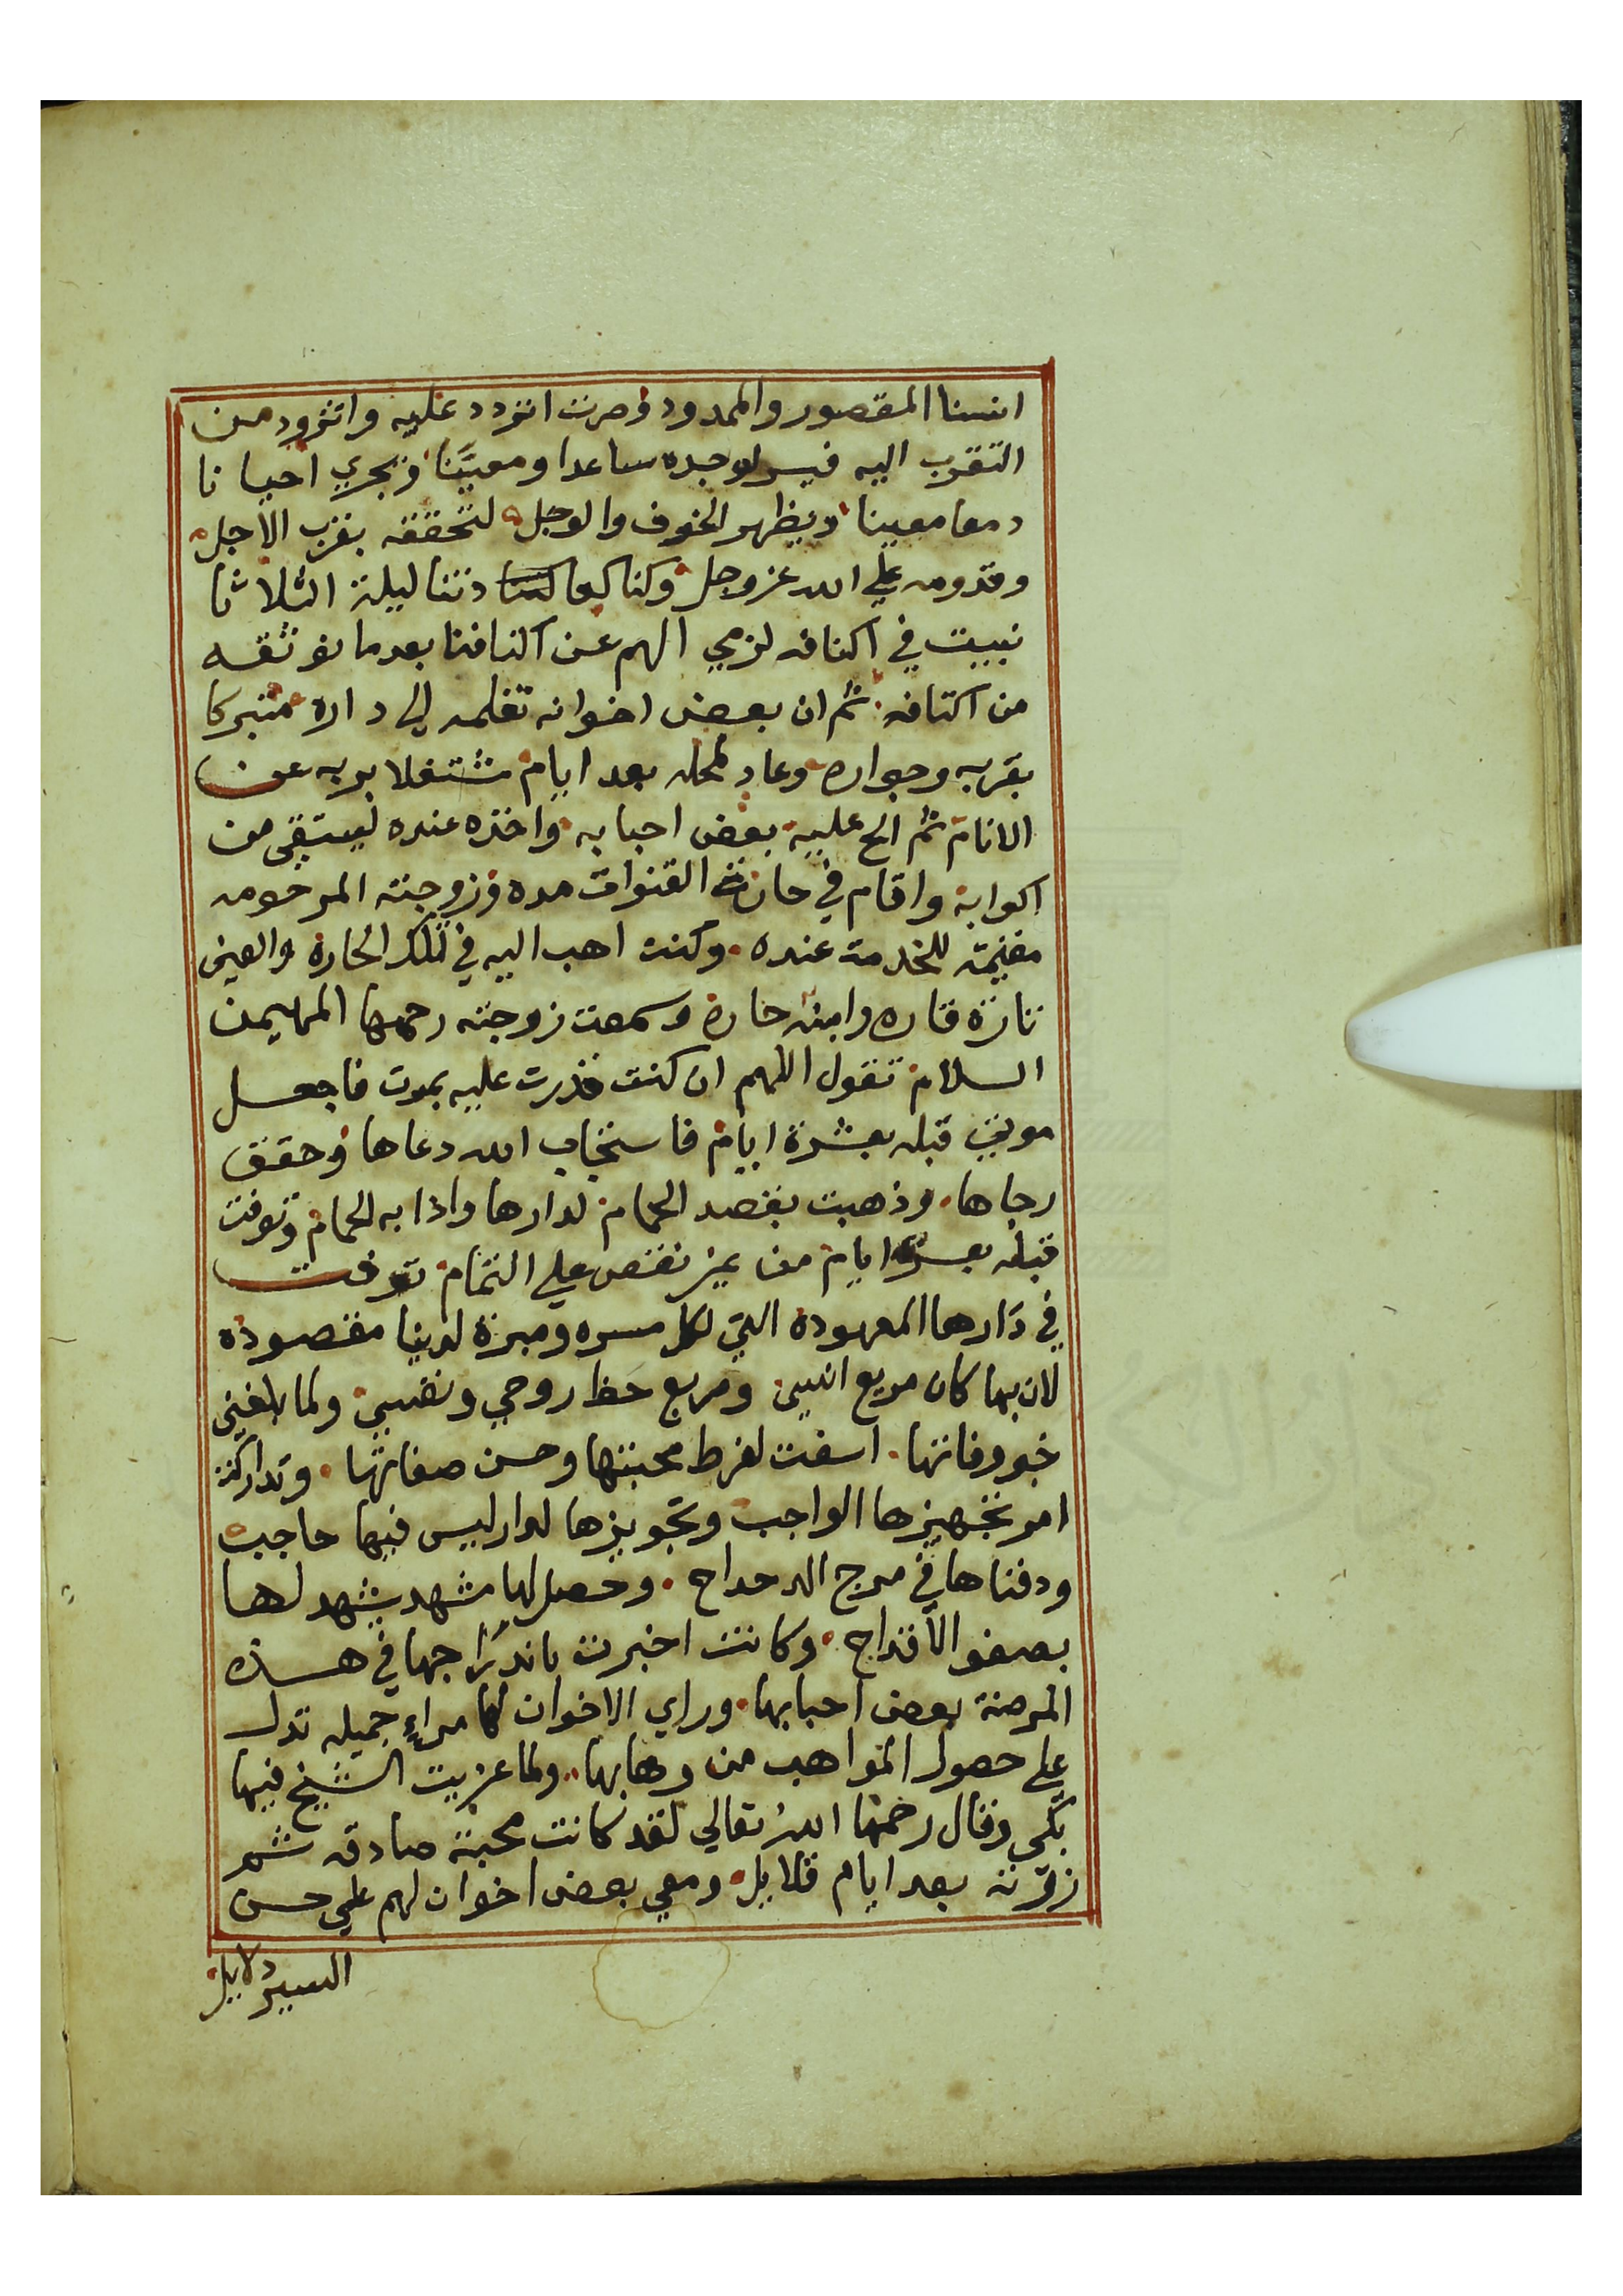 انسنا المقصور والممدود وصرت اتردد عليه واتزود من
التقرب اليه فيسر لوجده ساعدا ومعيَّنا ويجري احيانا
دمعا معينا ويظهر الخوف والوجل لتحققه بقرب الاجل
وقدومه علي الله عز وجل وكنا كما دتنا ليلة الثلاثا
نبيت في اكنافه لنرمي الهم عن اكتافنا بعدما نوثقه
من اكتافه ثم ان بعض اخوانه نقلمه الي داره متبركا
بقربه وجواره وعاد لمحله بعد ايام مشتغلا بربه عن
الانام ثم الح عليه بعض احبابه واخذه عنده ليستقي من
اكوابه واقام في حارة القنوات مده وزوجته المرحومه
مقيمة للخدمة عنده وكنت اهب اليه في تلك الحارة والعين
تازة قاره وابنه حاره وسمعت زوجته رحمها المهيمن
السلام تقول اللهم ان كنت قدرت عليه بموت فاجعل
موتي قبله بعشرة ايام فاستجاب الله دعاها وحقق
رجاها وذهبت بقصد الحمام لدارها واذا به الحمام وتوفت
قبله ايام من غير نقص علي التمام توفت
في دَارها المعهودة التي لكل مسره ومبرة لدينا مقصوده
لان بها كان مربع انسي ومربع حَظ روحي ونفسي ولما بلغني
خبر وفاتها اسفت لفرط محبتها وحسن صفاتها وتداركت
امر تجهيزها الواجب وتجويزها لدار ليس فيها حاجب
ودفناها في مرج الدحداح وحصل لها مشهد يشهد لها
بصفو الاقداح وكانت اخبرت باندرَاجها في هذه
المرضة بعض احبابها وراي الاخوان لها مراءٍ جميله تدل
علي حصول المواهب من وهابها ولما عزيت الشيخ فيها
بكي وقال رحمها اللهُ تعالي لقد كانت محبة صادقه ثم
زرته بعد ايام قلايل ومعي بعض اخوان لهم علي حسن
السير دلايل